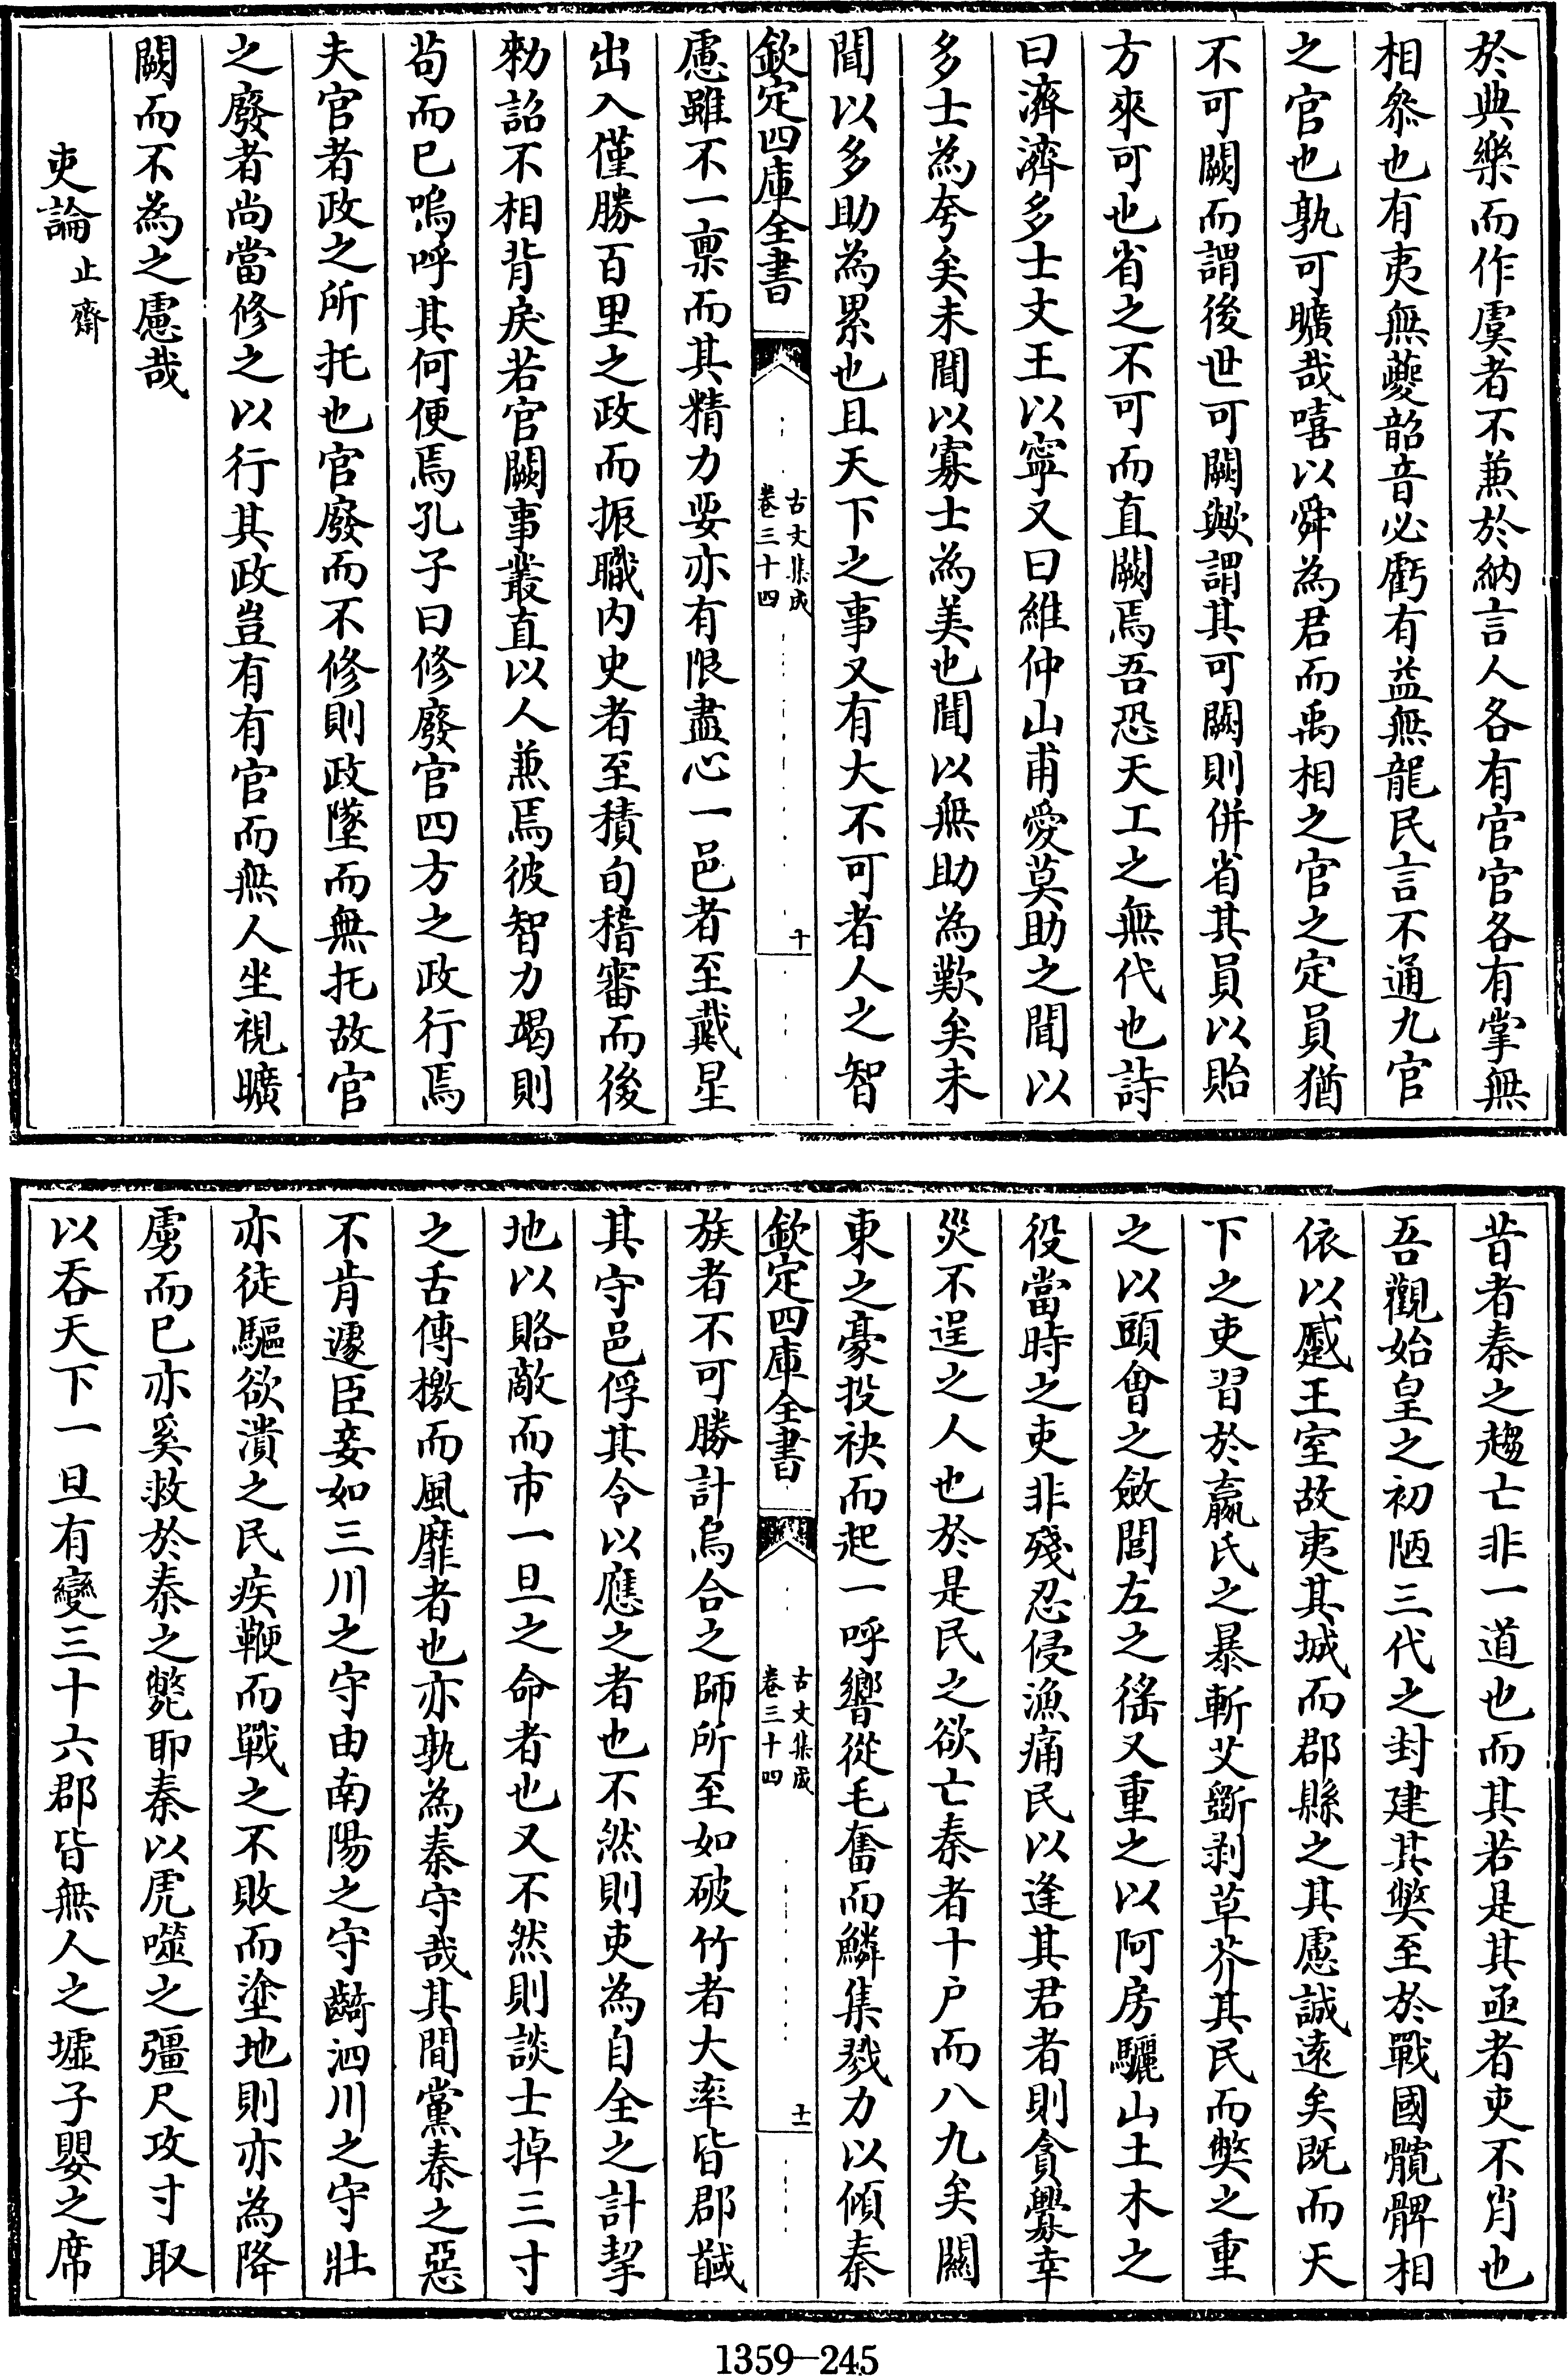 於典樂而作虞者不兼於納言人各有官官各有掌無
相叅也有夷無夔韶音必虧有益無龍民言不通九官
之官也孰可曠哉嘻以舜為君而禹相之官之定員猶
不可闕而謂後世可闕歟謂其可闕則併省其員以貽
方來可也省之不可而直闕焉吾恐天工之無代也詩
曰濟濟多士文王以寧又曰維仲山甫愛莫助之聞以
多士為夸矣未聞以寡士為美也聞以無助為歎矣未
聞以多助為累也且天下之事又有大不可者人之智
欽定四庫全書
古文集成
卷三十四
十
慮雖不一稟而其精力要亦有限盡心一邑者至戴星
出入僅勝百里之政而振職内史者至積旬稽審而後
勑詔不相背戾若官闕事叢直以人兼焉彼智力竭則
茍而已嗚呼其何便焉孔子曰修廢官四方之政行焉
夫官者政之所托也官廢而不修則政墜而無托故官
之廢者尚當修之以行其政豈有有官而無人坐視曠
闕而不為之慮哉
吏論 止齋
昔者秦之趨亡非一道也而其若是其亟者吏不肖也
吾觀始皇之初陋三代之封建其獘至於戰國髖髀相
依以蹙王室故夷其城而郡縣之其慮誠遠矣既而天
下之吏習於嬴氏之暴斬艾斵剥草芥其民而獘之重
之以頭㑹之斂閭左之徭又重之以阿房驪山土木之
役當時之吏非殘忍侵漁痛民以逢其君者則貪釁幸
災不逞之人也於是民之欲亡秦者十户而八九矣關
東之豪投袂而起一呼響從毛奮而鱗集戮力以傾秦
欽定四庫全書
古文集成
卷三十四
十一
族者不可勝計烏合之師所至如破竹者大率皆郡馘
其守邑俘其令以應之者也不然則吏為自全之計挈
地以賂敵而市一旦之命者也又不然則談士掉三寸
之舌傳檄而風靡者也亦孰為秦守哉其間黨秦之惡
不肯遽臣妾如三川之守由南陽之守齮泗川之守壯
亦徒驅欲潰之民疾鞭而戰之不敗而塗地則亦為降
虜而已亦奚救於秦之斃耶秦以虎噬之彊尺攻寸取
以吞天下一旦有變三十六郡皆無人之墟子嬰之席
1359—245